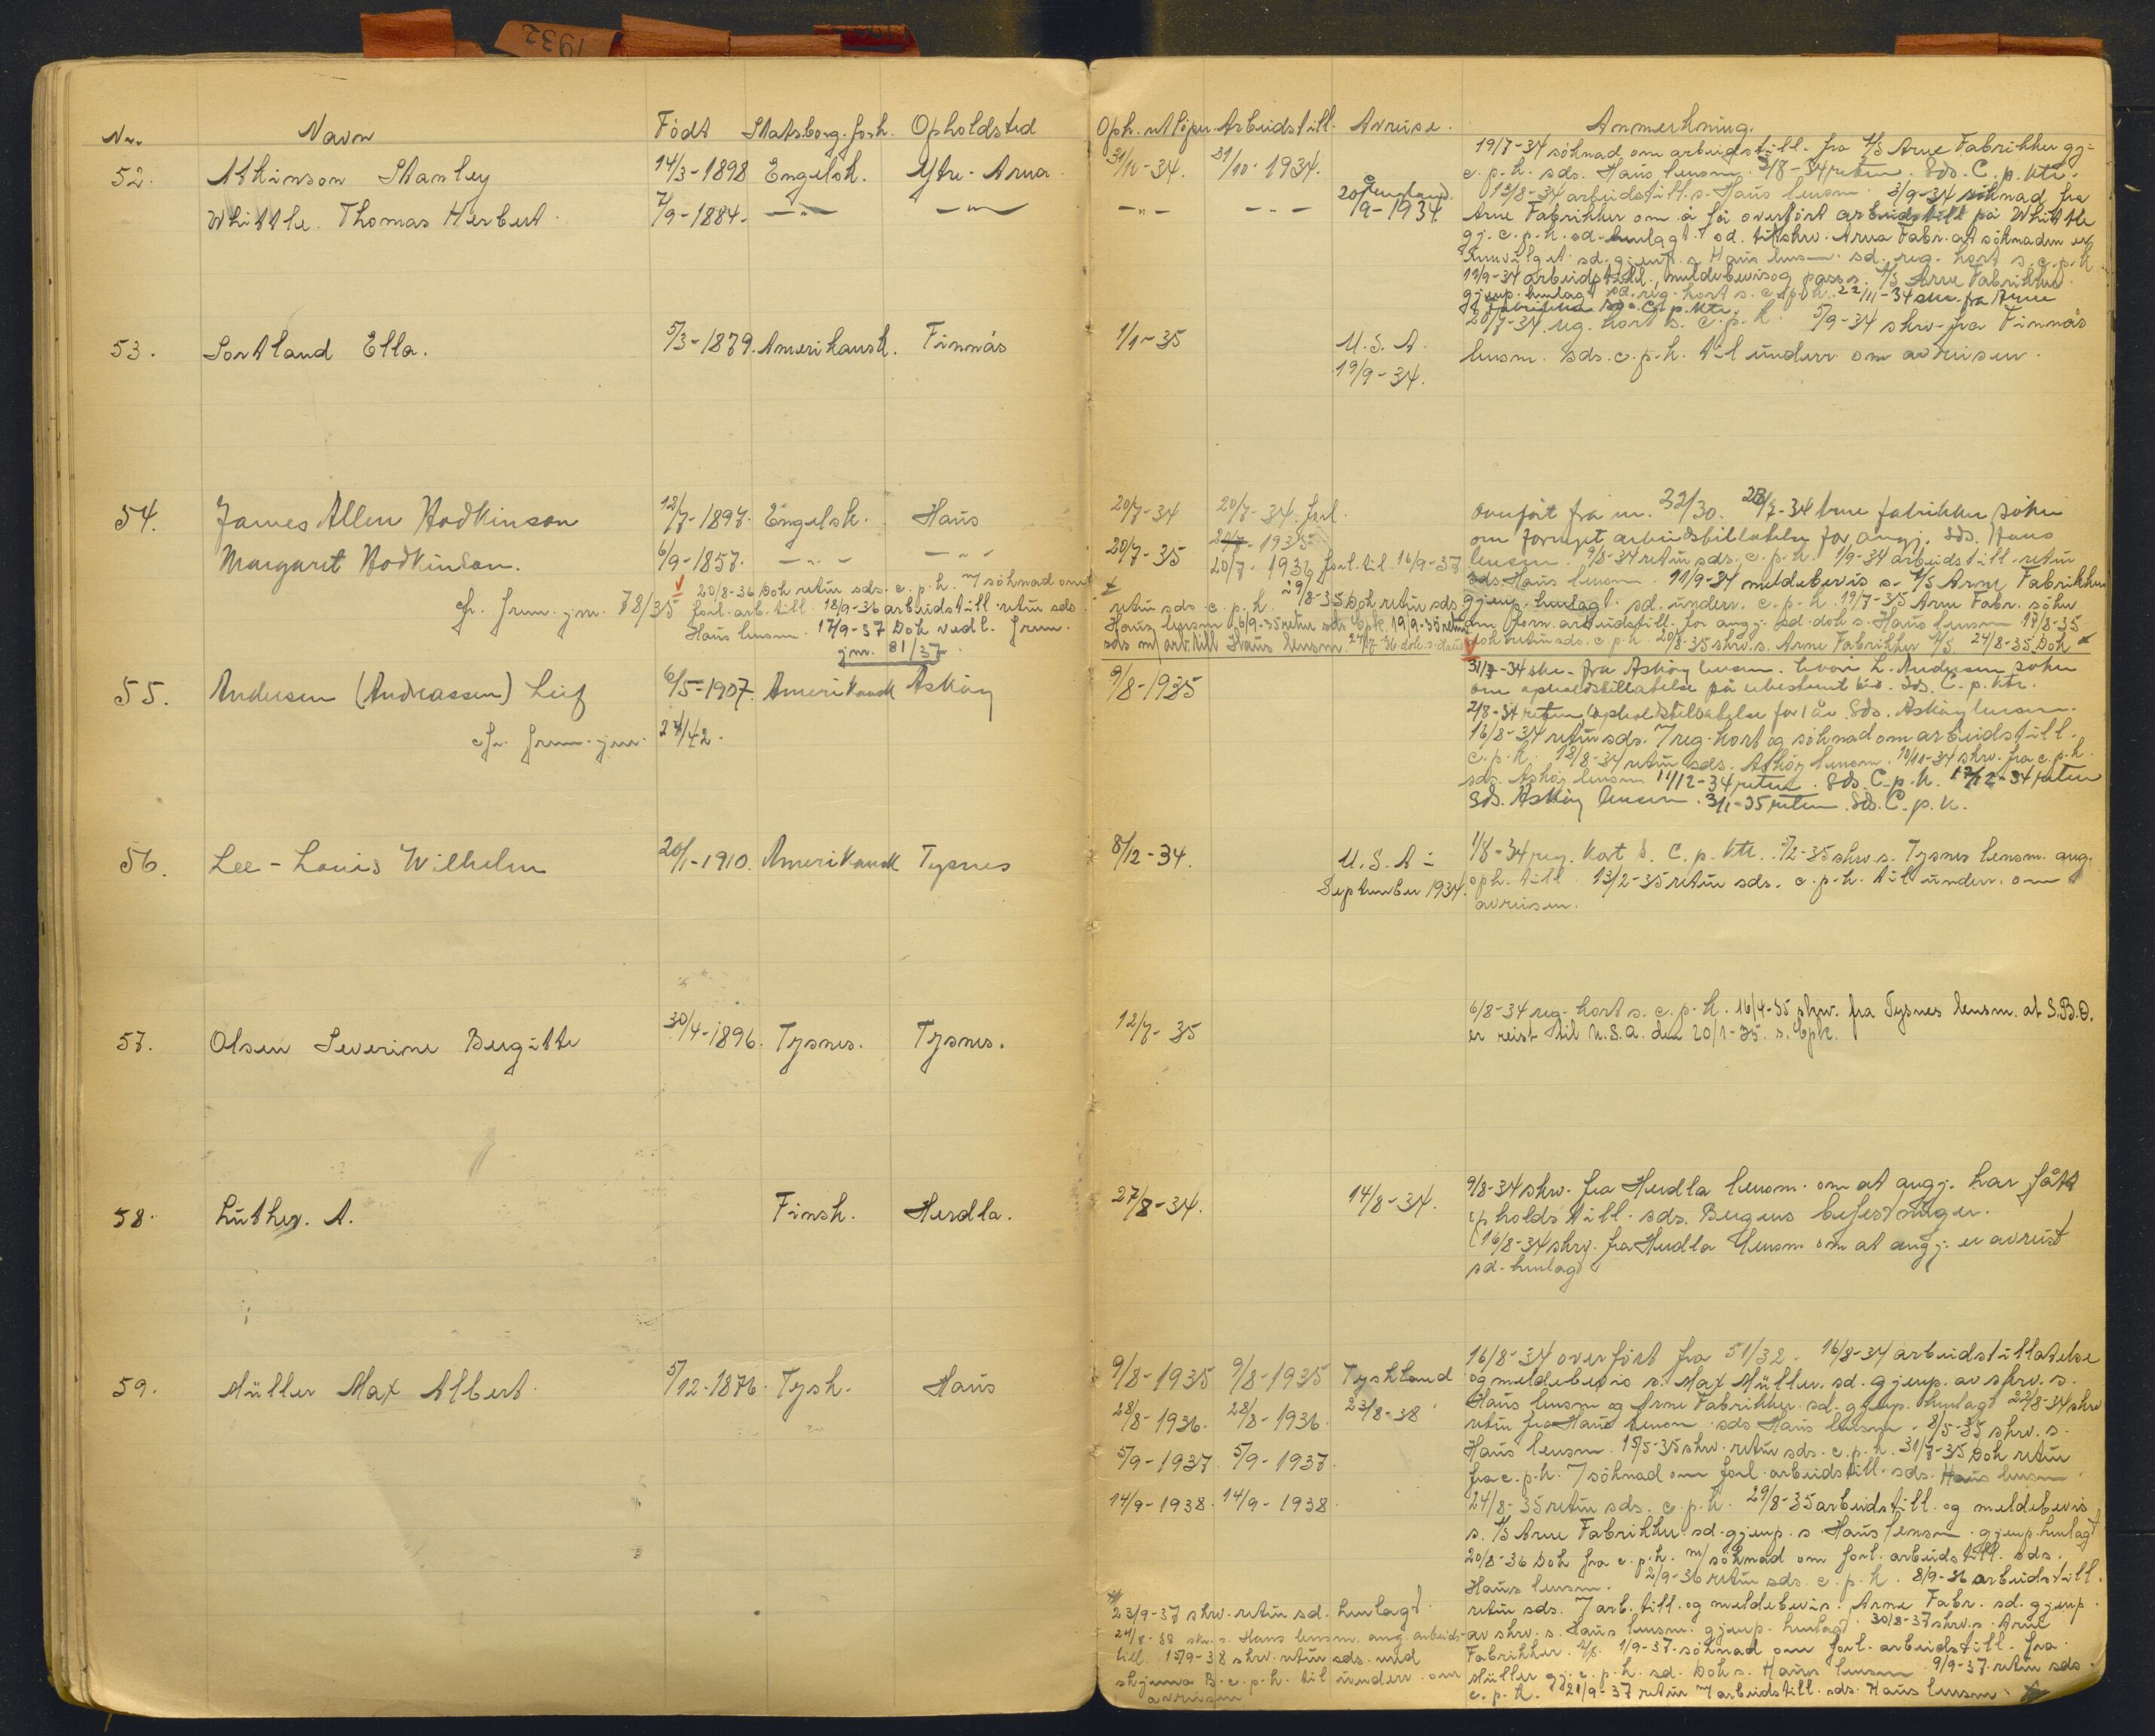 1932
Nr. Navn Födt Statsborg.forh. Opholdsted Oph. utlöper. Arbeidstill. Avreise. Anmerkning.
52. Atkinson Stanley 14/3-1898 Engelsk. Ytre-Arna 31/10-34. 31/10-1934.
19/7-34 söknad om arbeidstill. fra A/S Arne Fabrikker gj=
c.p.k. sds. Haus lensm. 3/8-34 retur. Sds. C.p.ktr.
Whittle. Thomas Herbert. 7/9-1884. —"— —"— —"— —"— 20/9-1934
13/8-34 arbeidstill. s. Haus lensm. 3/9-34 söknad fra
Arne Fabrikker om å få overfört arbeidstill på Whittle
gj. c.p.k. sd. henlagt. sd. tilskrv. Arna Fabr. at söknaden er
innvilget. sd. gjenp. s. Haus lensm. sd. reg. kort s. c.p.k.
19/9-34 arbeidstill., meldebevis og pass s. A/S Arne Fabrikker
gjenp. henlagt sd. reg. kort s. c.p.k. 22/11-34 skr. fra Arne
Fabrikker sds. C.p.ktr.
53. Sortland Ella. 5/3-1879. Amerikansk. Finnås 1/1-35 U.S.A. 19/9-34.
20/7-34. reg. kort s. c.p.k. 5/9-34 skrv. fra Finnås
lensm. sds. c.p.k. til underr. om avreisen.
54. James Allen Hodkinson 12/7-1897. Engelsk. Haus 20/7-34 20/7-34. forl.
Overfört fra nr. 32/30. 28/7-34 Arne fabrikker söker
om fornyet arbeidstillatelse for angj. Sds. Haus
Margaret Hodkinson. 6/9-1857. —"— —"— 20/7-35 20/7-1935
20/7-1936 forl. til 16/9-37
lensm. 9/8-34 retur sds. c.p.k. 1/9-34 arbeidstill. retur
sds. Haus lensm. 11/9-34 meldebevis s. A/S Arne Fabrikker
gjenp. henlagt. sd. underr. c.p.k. 19/7-35 Arne Fabr. söker
om forn. arbeidstill. for angj. sd. dok s. Haus lensm 17/8-35
dok retur sds. c.p.k. 20/8-35 skrv. s. Arne Fabrikker A/S. 24/8-35 Dok
retur sds. c.p.k. 29/8-35 Dok retur sds.
Haus lensm. 16/9-35 retur sds Cpk. 19/9-35 retur
sds m/ arb. till Haus lensm. 27/7-36 dok. s. Haus
20/8-36 Dok retur sds. c.p.k. m/ söknad om
cfr. frem. jnr. 78/35 forl. arb. till. 18/9-36 arbeidstill. retur sds
Haus lensm. 17/9-37 Dok vedl. frem.
jnr. 81/37
55. Andersen (Andreassen) Leif 6/5-1907. Amerikansk Asköy 9/8-1935
cfr. frem. jnr. 24/42.
31/7-34 skr. fra Asköy lensm. hvori L. Andersen söker
om opholdstillatelse på ubestemt tid. Sds. C.p.ktr.
2/8-34 retur opholdstillatelse for 1 år. Sds. Asköy lensm.
16/8-34 retur sds. m/ reg. kort og söknad om arbeidstill.
c.p.k. 18/8-34 retur sds. Asköy lensm. 10/11-34 skrv. fra c.p.k.
sds. Asköy lensm 11/12-34 retur. Sds. C.p.k. 17/12-34 retur
Sds. Asköy lensm. 3/1-35 retur. Sds. C.p.k.
56. Lee-Louis Wilhelm 20/1-1910. Amerikansk Tysnes 8/12-34. U.S.A - September 1934.
1/8-34 reg. kort s. C.p.ktr. 5/2-35 skrv. s. Tysnes lensm. ang.
oph. till. 13/2-35 retur sds. c.p.k. til underr. om
avreisen.
57. Olsen Severine Bergitte 30/4-1896. Tysnes. Tysnes. 12/7-35
6/8-34 reg. kort s. c.p.k. 16/4-35 skrv. fra Tysnes lensm. at S.B.O.
er reist til U.S.A. den 20/1-35. s. Cpk.
58. Luther. A. Finsk. Herdla. 27/8-34. 14/8-34.
9/8-34 skrv. fra Herdla lensm. om at angj. har fått
opholds till. sds. Bergens befestninger.
16/8-34 skrv. fra Herdla lensm om at angj. er avreist
sd. henlagt
59. Müller Max Albert. 5/12-1876. Tysk. Haus 9/8-1935 9/8-1935 Tyskland
28/8-1936. 28/8-1936. 23/8-38
5/9-1937. 5/9-1937.
14/9-1938. 14/9-1938.
16/8-34 overfört fra 51/32. 16/8-34 arbeidstillatelse
og meldebevis s. Max Müller. sd. gjenp. av skrv. s.
Haus lensm og Arne Fabrikker. sd. gjenp. henlagt 22/8-34 skrv
retur fra Haus lensm sds Haus lensm. 8/5-35 skrv. s.
Haus lensm. 15/5-35 skrv. retur sds. c.p.k. 31/7-35 Dok retur
fra c.p.k. m/ söknad om forl. arbeidstill. sds. Haus lensm.
24/8-35 retur sds. c.p.k. 29/8-35 arbeidstill. og meldebevis
s. A/S Arne Fabrikker. sd. gjenp. s. Haus lensm. gjenp. henlagt
20/8-36 Dok fra c.p.k. m/ söknad om forl. arbeidstill. sds.
Haus lensm. 2/9-36 retur sds. c.p.k. 8/9-36 arbeidstill.
retur sds. m/ arb. till. og meldebevis. Arne Fabr. sd. gjenp.
av skrv. s. Haus lensm. gjenp. henlagt. 30/8-37 skrv. s. Arne
Fabrikker. A/S. 1/9-37. söknad om forl. arbeidstill. fra
Müller gj. c.p.k. sd. Dok s. Haus lensm. 9/9-37 retur sds.
c.p.k. 21/9-37 retur m/ arbeidstill. sds. Haus lensm.
23/9-37 skrv. retur sd. henlagt.
24/8-38 skr. s. Haus lensm. ang. arbeids-
till. 15/9-38 skrv. retur sds. med
skjema B. c.p.k. til underr. om
avreisen